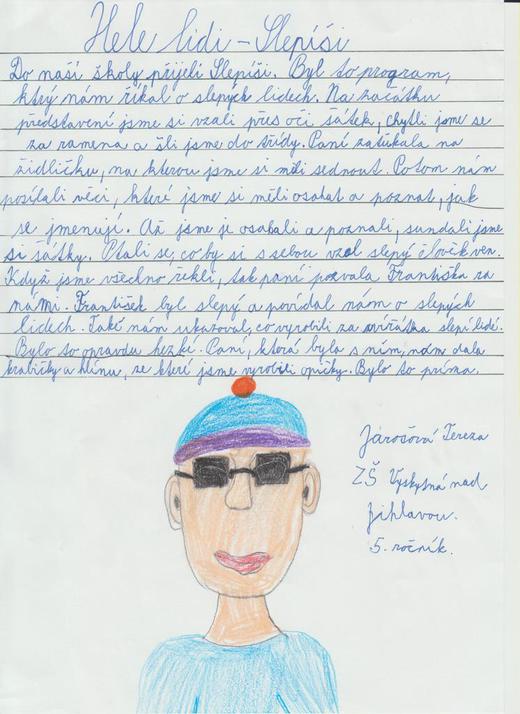 Hele lidi - Slepíši
Do naší školy přijeli Slepíši. Byl to program,
ktrý nám říkal o slepých lidech. Na začátku
představení jsme si vzali přes oči šátek, chytli jsme se
za ramena a šli jsme do třídy. Paní zaťukala na
židličku, na kterou jsme si měli sednout. Potom nám
posílali věci, které jsme si měli osahat a poznat, jak
se jmenují. Až jsme je osahali a poznali, sundali jsme
si šátky. Ptali se, co by si s sebou vzal slepý člověk ven.
Když jsme všechno řekli, tak paní pozvala Františka za
námi. František byl slepý a povídal nám o slepých
lidech. Také nám ukazoval, co vyrobili za zvířátka slepí lidé.
Bylo to opravdu hezké. Paní, která byla s ním, nám dala
krabičky a hlínu, ze které jsme vyrobili opičky. Bylo to príma.
Jarošová Tereza
ZŠ Vyskytná nad
Jihlavou.
5. ročník.